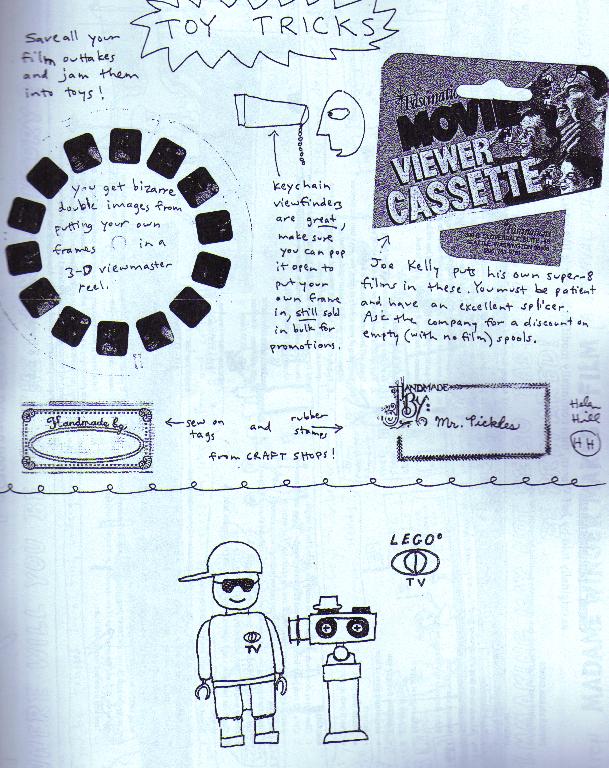 TOY TRICKS
Save all your
film outtakes
and jam them
into toys!
you get bizarre
double images from
putting your own
frames in a
3-D viewmaster
reel.
Keychain
viewfinders
are great,
make sure
you can pop
it open to
put your
own frame
in, still sold
in bulk for
promotions.
Fascinating
MOVIE
VIEWER
CASSETTE
Joe Kelly puts his own super-8
films in these. You must be patient
and have an excellent splicer.
Ask the company for a discount on
empty (with no film) spools.
Handmade by
← sew on
tags
and
rubber
stamps →
from CRAFT SHOPS!
HANDMADE
BY:
Mr. Pickles
Helen
Hill
HH
LEGO®
TV
TV